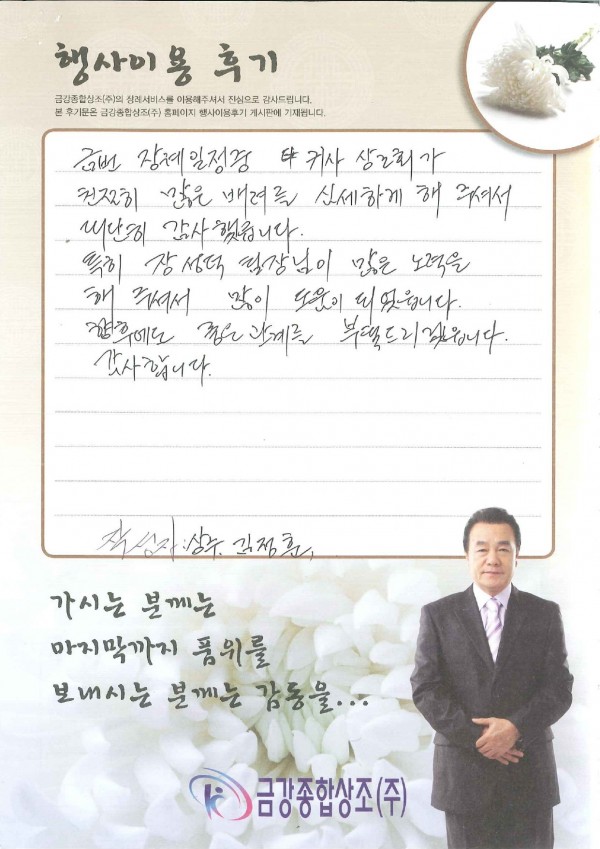 행사이용 후기
금강종합상조(주)의 장례서비스를 이용해주셔서 진심으로 감사드립니다.
본 후기문은 금강종합상조(주) 홈페이지 행사이용후기 게시판에 기재됩니다.
금번 장례일정중 귀사 상조회가
친절히 많은 배려를 신세하게 해 주셔서
대단히 감사했읍니다.
특히 장성덕 팀장님이 많은 노력을
해 주셔서 많이 도움이 되었읍니다.
향후에도 좋은 관계를 부탁드리겠읍니다.
감사합니다.
작성자: 상주. 김정훈.
가시는 분께는
마지막까지 품위를
보내시는 분께는 감동을...
금강종합상조(주)